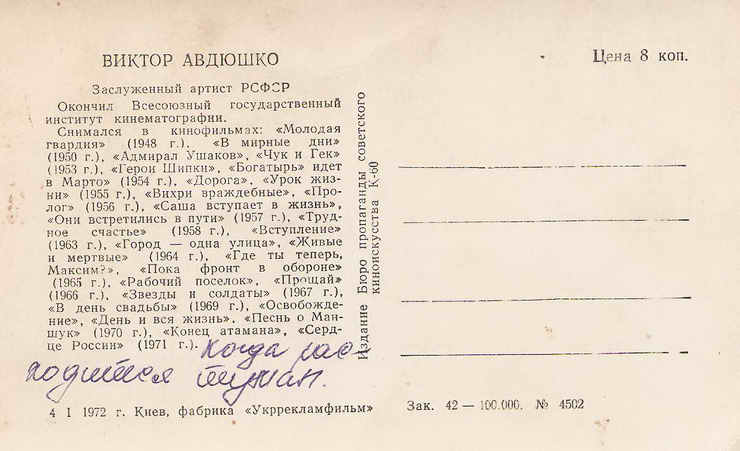 ВИКТОР АВДЮШКО
Заслуженный артист РСФСР
Окончил Всесоюзный государственный
институт кинематографии.
Снимался в кинофильмах: «Молодая
гвардия» (1948 г.), «В мирные дни»
(1950 г.), «Адмирал Ушаков», «Чук и Гек»
(1953 г.), «Герои Шипки», «Богатырь» идет
в Марто» (1954 г.), «Дорога», «Урок жиз-
ни» (1955 г.), «Вихри враждебные», «Про-
лог» (1956 г.), «Саша вступает в жизнь»,
«Они встретились в пути» (1957 г.), «Труд-
ное счастье» (1958 г.), «Вступление»
(1963 г.), «Город — одна улица», «Живые
и мертвые» (1964 г.), «Где ты теперь,
Максим?», «Пока фронт в обороне»
(1965 г.), «Рабочий поселок», «Прощай»
(1966 г.), «Звезды и солдаты» (1967 г.),
«В день свадьбы» (1969 г.), «Освобожде-
ние», «День и вся жизнь», «Песнь о Ман-
шук» (1970 г.), «Конец атамана», «Серд-
це России» (1971 г.). Когда рас
ходится туман.
4 I 1972 г. Киев, фабрика «Укррекламфильм»
Издание Бюро пропаганды советского
киноискусства К-60
Цена 8 коп.
Зак. 42 — 100.000. № 4502